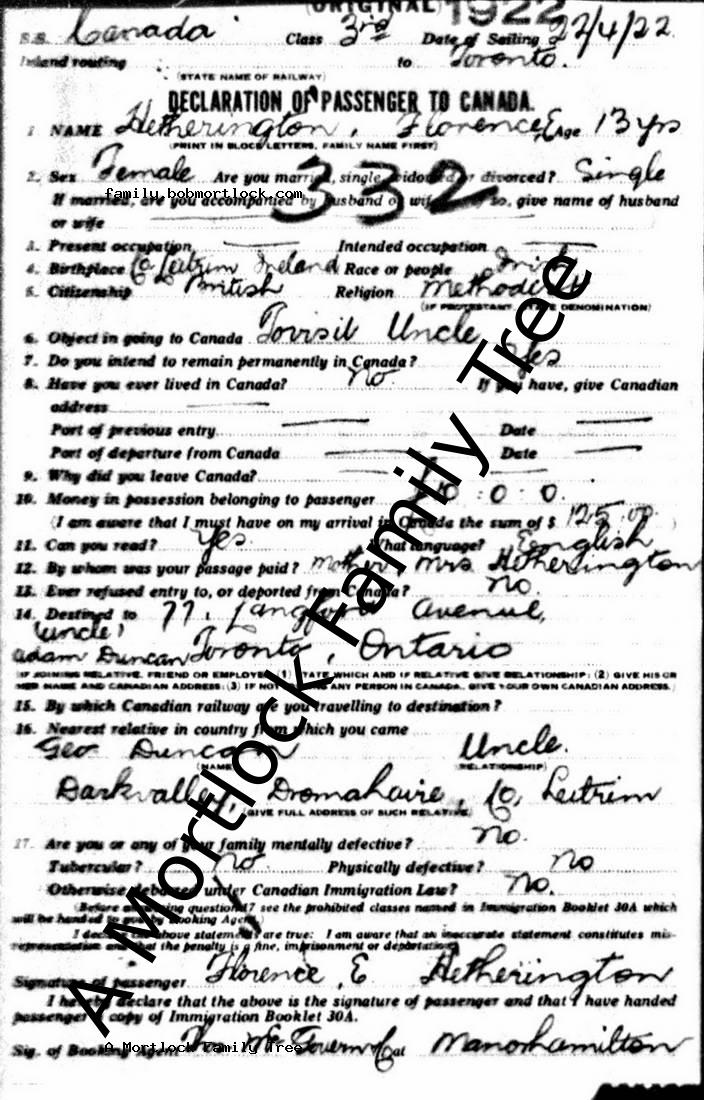 (ORIGINAL) 1922
S.S. Canada Class 3rd Date of Sailing 22/4/22
Inland routing to Toronto.
(STATE NAME OF RAILWAY)
DECLARATION OF PASSENGER TO CANADA.
1. NAME Hetherington, Florence, E Age 13 yrs
(PRINT IN BLOCK LETTERS, FAMILY NAME FIRST)
2. Sex Female Are you married, single, widowed or divorced? Single
332
family.bobmortlock.com
If married, are you accompanied by husband or wife so, give name of husband
or wife
3. Present occupation Intended occupation
4. Birthplace Co Leitrim Ireland Race or people Irish
5. Citizenship British Religion Methodist
(IF PROTESTANT, STATE DENOMINATION)
6. Object in going to Canada To visit Uncle
7. Do you intend to remain permanently in Canada? Yes
8. Have you ever lived in Canada? No. If you have, give Canadian
address
Port of previous entry Date
Port of departure from Canada Date
9. Why did you leave Canada?
10. Money in possession belonging to passenger £10 : 0 : 0.
(I am aware that I must have on my arrival in Canada the sum of $ 125.00)
11. Can you read? Yes What language? English
12. By whom was your passage paid? Mother Mrs Hetherington
13. Ever refused entry to, or deported from Canada? No.
14. Destined to 77, Langford Avenue,
(uncle)
Adam Duncan Toronto, Ontario
(IF JOINING RELATIVE, FRIEND OR EMPLOYER (1) STATE WHICH AND IF RELATIVE GIVE RELATIONSHIP: (2) GIVE HIS OR
HER NAME AND CANADIAN ADDRESS: (3) IF NOT JOINING ANY PERSON IN CANADA, GIVE YOUR OWN CANADIAN ADDRESS.)
15. By which Canadian railway are you travelling to destination?
16. Nearest relative in country from which you came
Geo Duncan Uncle.
(NAME) (RELATIONSHIP)
Darkvalley, Dromahaire, Co, Leitrim
(GIVE FULL ADDRESS OF SUCH RELATIVE)
17. Are you or any of your family mentally defective? No.
Tubercular? No. Physically defective? No
Otherwise debarred under Canadian Immigration Law? No.
(Before answering question 17 see the prohibited classes named in Immigration Booklet 30A which
will be handed to you by Booking Agent)
I declare the above statements are true: I am aware that an inaccurate statement constitutes mis-
representation and that the penalty is a fine, imprisonment or deportation.
Signature of passenger Florence, E Hetherington
I hereby declare that the above is the signature of passenger and that I have handed
passenger a copy of Immigration Booklet 30A.
Sig. of Booking Agent Thos McGovern & Co at Manorhamilton
A Mortlock Family Tree
A Mortlock Family Tree